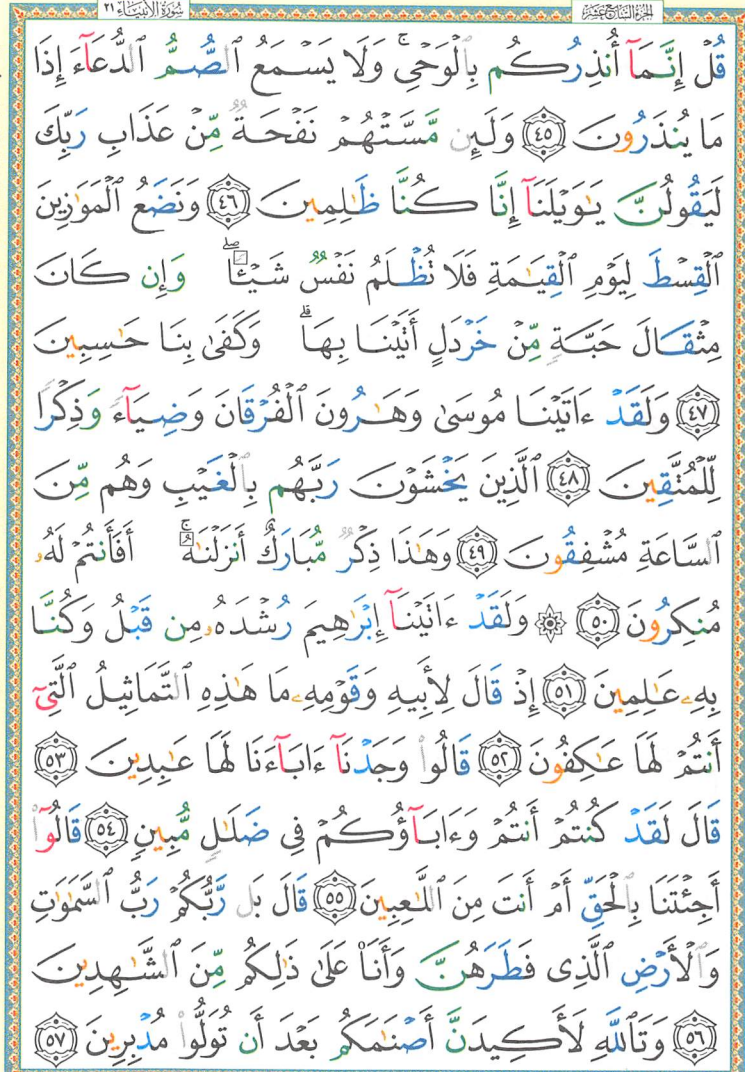 الجزء السابع عشر
سورة الأنبياء ٢١
قُلْ إِنَّمَآ أُنذِرُكُم بِٱلْوَحْىِ ۚ وَلَا يَسْمَعُ ٱلصُّمُّ ٱلدُّعَآءَ إِذَا
مَا يُنذَرُونَ ٤٥ وَلَئِن مَّسَّتْهُمْ نَفْحَةٌ مِّنْ عَذَابِ رَبِّكَ
لَيَقُولُنَّ يَٰوَيْلَنَآ إِنَّا كُنَّا ظَٰلِمِينَ ٤٦ وَنَضَعُ ٱلْمَوَٰزِينَ
ٱلْقِسْطَ لِيَوْمِ ٱلْقِيَٰمَةِ فَلَا تُظْلَمُ نَفْسٌ شَيْـًٔا ۖ وَإِن كَانَ
مِثْقَالَ حَبَّةٍ مِّنْ خَرْدَلٍ أَتَيْنَا بِهَا ۗ وَكَفَىٰ بِنَا حَٰسِبِينَ
٤٧ وَلَقَدْ ءَاتَيْنَا مُوسَىٰ وَهَٰرُونَ ٱلْفُرْقَانَ وَضِيَآءً وَذِكْرًا
لِّلْمُتَّقِينَ ٤٨ ٱلَّذِينَ يَخْشَوْنَ رَبَّهُم بِٱلْغَيْبِ وَهُم مِّنَ
ٱلسَّاعَةِ مُشْفِقُونَ ٤٩ وَهَٰذَا ذِكْرٌ مُّبَارَكٌ أَنزَلْنَٰهُ ۚ أَفَأَنتُمْ لَهُۥ
مُنكِرُونَ ٥٠ ۞ وَلَقَدْ ءَاتَيْنَآ إِبْرَٰهِيمَ رُشْدَهُۥ مِن قَبْلُ وَكُنَّا
بِهِۦ عَٰلِمِينَ ٥١ إِذْ قَالَ لِأَبِيهِ وَقَوْمِهِۦ مَا هَٰذِهِ ٱلتَّمَاثِيلُ ٱلَّتِىٓ
أَنتُمْ لَهَا عَٰكِفُونَ ٥٢ قَالُوا۟ وَجَدْنَآ ءَابَآءَنَا لَهَا عَٰبِدِينَ ٥٣
قَالَ لَقَدْ كُنتُمْ أَنتُمْ وَءَابَآؤُكُمْ فِى ضَلَٰلٍ مُّبِينٍ ٥٤ قَالُوٓا۟
أَجِئْتَنَا بِٱلْحَقِّ أَمْ أَنتَ مِنَ ٱللَّٰعِبِينَ ٥٥ قَالَ بَل رَّبُّكُمْ رَبُّ ٱلسَّمَٰوَٰتِ
وَٱلْأَرْضِ ٱلَّذِى فَطَرَهُنَّ وَأَنَا۠ عَلَىٰ ذَٰلِكُم مِّنَ ٱلشَّٰهِدِينَ
٥٦ وَتَٱللَّهِ لَأَكِيدَنَّ أَصْنَٰمَكُم بَعْدَ أَن تُوَلُّوا۟ مُدْبِرِينَ ٥٧